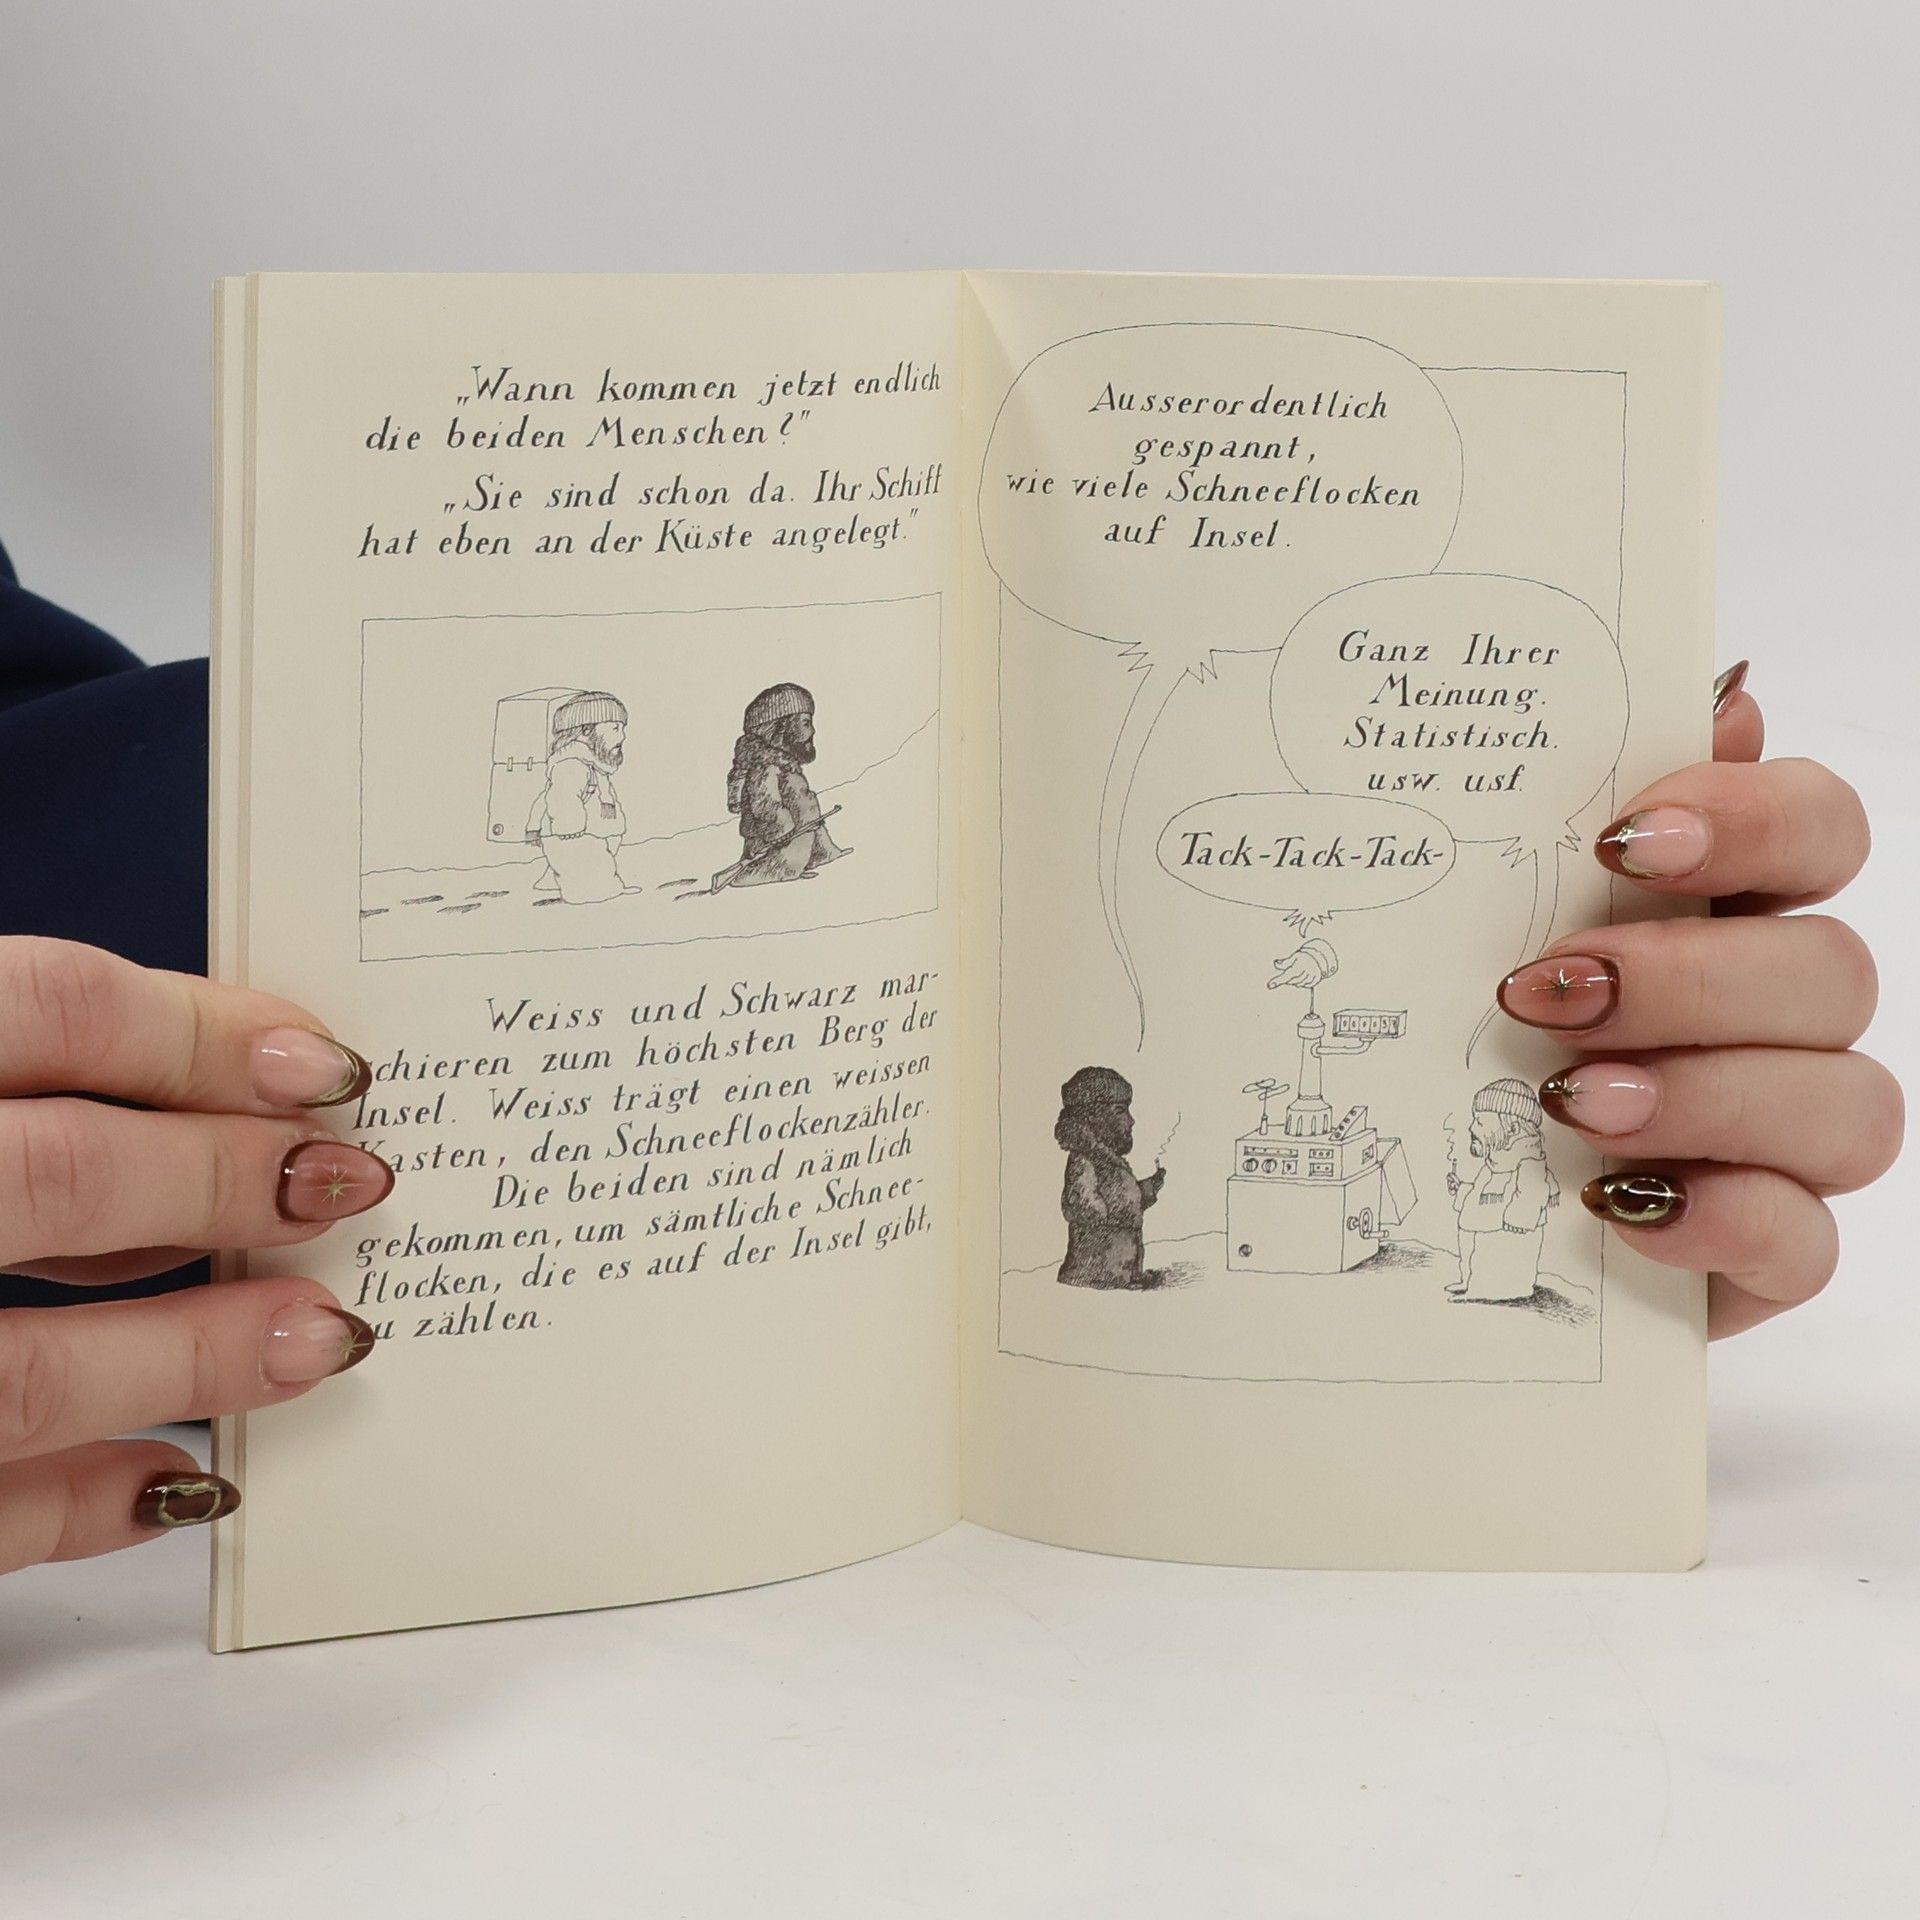 „Wann kommen jetzt endlich
die beiden Menschen?"
„Sie sind schon da. Ihr Schiff
hat eben an der Küste angelegt."
Weiss und Schwarz mar-
schieren zum höchsten Berg der
Insel. Weiss trägt einen weissen
Kasten, den Schneeflockenzähler.
Die beiden sind nämlich
gekommen, um sämtliche Schnee-
flocken, die es auf der Insel gibt,
zu zählen.
Ausserordentlich
gespannt,
wie viele Schneeflocken
auf Insel.
Ganz Ihrer
Meinung.
Statistisch.
usw. usf.
Tack-Tack-Tack-